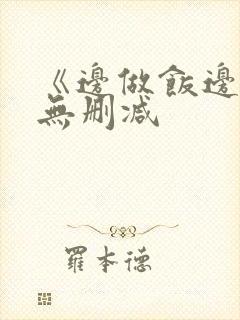 《邊做飯邊
無刪減
羅本德